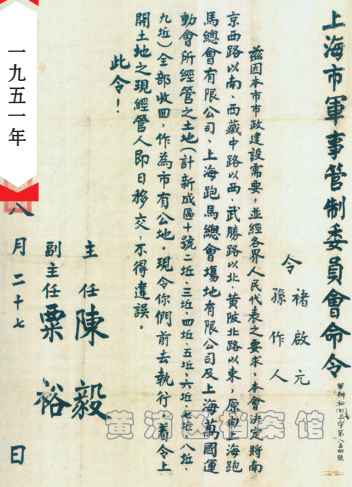 上海市軍事管制委員會命令
令
褚啟元
孫作人
茲因本市市政建設需要，並經各界人民代表之要求，本會決定將南
京西路以南、西藏中路以西、武勝路以北、黃陂北路以東，原由上海跑
馬總會有限公司、上海跑馬總會場地有限公司及上海萬國運
動會所經管之土地(計新成區十號二坵、三坵、四坵、五坵、六坵、七坵、八坵、
九坵)全部收回，作為市有公地。現令你們前去執行，着令上
開土地之現經管人即日移交，不得違誤。
此令！
主任 陳毅
副主任 粟裕
八月二十七日
一九五一年
黄浦区档案馆